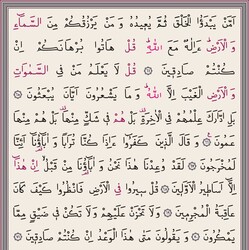 أَمَّن يَبْدَؤُا۟ ٱلْخَلْقَ ثُمَّ يُعِيدُهُۥ وَمَن يَرْزُقُكُم مِّنَ ٱلسَّمَآءِ
وَٱلْأَرْضِ أَءِلَٰهٌ مَّعَ ٱللَّهِ قُلْ هَاتُوا۟ بُرْهَٰنَكُمْ إِن
كُنتُمْ صَٰدِقِينَ ۝ قُل لَّا يَعْلَمُ مَن فِى ٱلسَّمَٰوَٰتِ
وَٱلْأَرْضِ ٱلْغَيْبَ إِلَّا ٱللَّهُ وَمَا يَشْعُرُونَ أَيَّانَ يُبْعَثُونَ ۝
بَلِ ٱدَّٰرَكَ عِلْمُهُمْ فِى ٱلْءَاخِرَةِ بَلْ هُمْ فِى شَكٍّ مِّنْهَا بَلْ هُم مِّنْهَا
عَمُونَ ۝ وَقَالَ ٱلَّذِينَ كَفَرُوٓا۟ أَءِذَا كُنَّا تُرَٰبًا وَءَابَآؤُنَآ أَئِنَّا
لَمُخْرَجُونَ ۝ لَقَدْ وُعِدْنَا هَٰذَا نَحْنُ وَءَابَآؤُنَا مِن قَبْلُ إِنْ هَٰذَآ
إِلَّآ أَسَٰطِيرُ ٱلْأَوَّلِينَ ۝ قُلْ سِيرُوا۟ فِى ٱلْأَرْضِ فَٱنظُرُوا۟ كَيْفَ كَانَ
عَٰقِبَةُ ٱلْمُجْرِمِينَ ۝ وَلَا تَحْزَنْ عَلَيْهِمْ وَلَا تَكُن فِى ضَيْقٍ مِّمَّا
يَمْكُرُونَ ۝ وَيَقُولُونَ مَتَىٰ هَٰذَا ٱلْوَعْدُ إِن كُنتُمْ صَٰدِقِينَ ۝